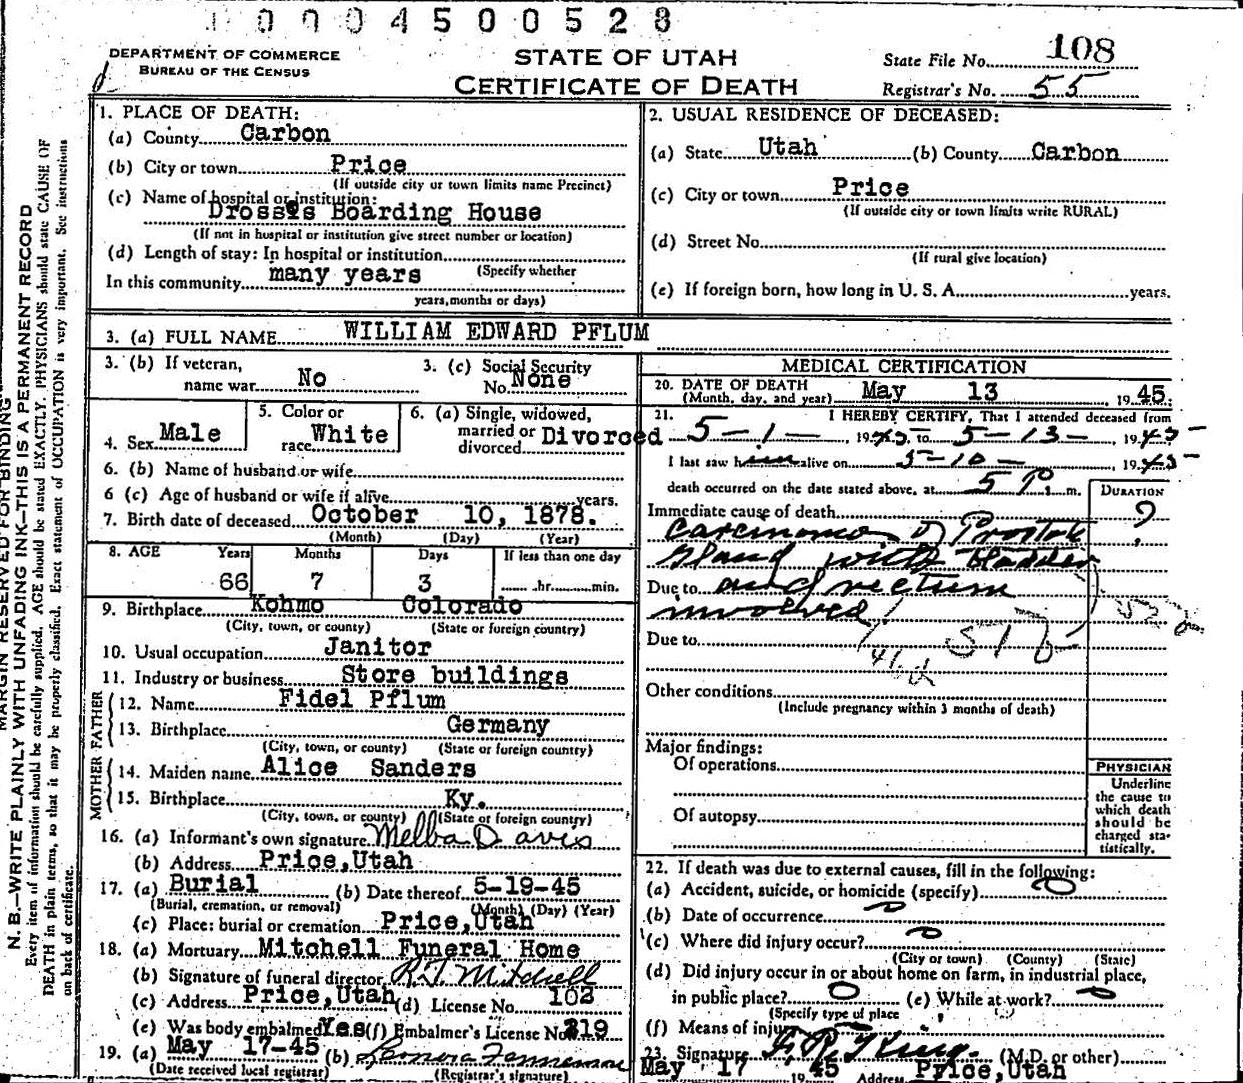 0004500528
DEPARTMENT OF COMMERCE
BUREAU OF THE CENSUS
STATE OF UTAH
CERTIFICATE OF DEATH
State File No. 108
Registrar's No. 55
MARGIN RESERVED FOR BINDING
N. B.—WRITE PLAINLY WITH UNFADING INK—THIS IS A PERMANENT RECORD
Every item of information should be carefully supplied. AGE should be stated EXACTLY. PHYSICIANS should state CAUSE OF
DEATH in plain terms, so that it may be properly classified. Exact statement of OCCUPATION is very important. See instructions
on back of certificate.
1. PLACE OF DEATH:
(a) County Carbon
(b) City or town Price
(If outside city or town limits name Precinct)
(c) Name of hospital or institution:
Drossis Boarding House
(If not in hospital or institution give street number or location)
(d) Length of stay: In hospital or institution
(Specify whether
In this community many years
years, months or days)
2. USUAL RESIDENCE OF DECEASED:
(a) State Utah (b) County Carbon
(c) City or town Price
(If outside city or town limits write RURAL)
(d) Street No.
(If rural give location)
(e) If foreign born, how long in U. S. A. years.
3. (a) FULL NAME WILLIAM EDWARD PFLUM
3. (b) If veteran, name war No
3. (c) Social Security No. None
4. Sex Male
5. Color or race White
6. (a) Single, widowed, married or divorced Divorced
6. (b) Name of husband or wife
6 (c) Age of husband or wife if alive years.
7. Birth date of deceased October 10, 1878.
(Month) (Day) (Year)
8. AGE Years Months Days If less than one day
66 7 3 hr. min.
9. Birthplace Kohmo Colorado
(City, town, or county) (State or foreign country)
10. Usual occupation Janitor
11. Industry or business Store buildings
FATHER
12. Name Fidel Pflum
13. Birthplace Germany
(City, town, or county) (State or foreign country)
MOTHER
14. Maiden name Alice Sanders
15. Birthplace Ky.
(City, town, or county) (State or foreign country)
16. (a) Informant's own signature Melba Davis
(b) Address Price, Utah
17. (a) Burial (b) Date thereof 5-19-45
(Burial, cremation, or removal) (Month) (Day) (Year)
(c) Place: burial or cremation Price, Utah
18. (a) Mortuary Mitchell Funeral Home
(b) Signature of funeral director R.J. Mitchell
(c) Address Price, Utah (d) License No. 102
(e) Was body embalmed Yes (f) Embalmer's License No. 219
19. (a) May 17-45 (b)
(Date received local registrar) (Registrar's signature)
MEDICAL CERTIFICATION
20. DATE OF DEATH May 13, 1945;
(Month, day, and year)
21. I HEREBY CERTIFY, That I attended deceased from
5-1-, 1945 to 5-13-, 1945
I last saw him alive on 5-10-, 1945
death occurred on the date stated above, at 5 P. m.
DURATION
Immediate cause of death ?
Carcinoma of Prostate
gland with bladder
Due to and rectum
involved
Due to
Other conditions
(Include pregnancy within 3 months of death)
Major findings:
Of operations
Of autopsy
PHYSICIAN
Underline
the cause to
which death
should be
charged sta-
tistically.
22. If death was due to external causes, fill in the following:
(a) Accident, suicide, or homicide (specify)
(b) Date of occurrence
(c) Where did injury occur?
(City or town) (County) (State)
(d) Did injury occur in or about home on farm, in industrial place,
in public place? (e) While at work?
(Specify type of place
(f) Means of injury
23. Signature (M.D. or other)
May 17 1945 Address Price, Utah